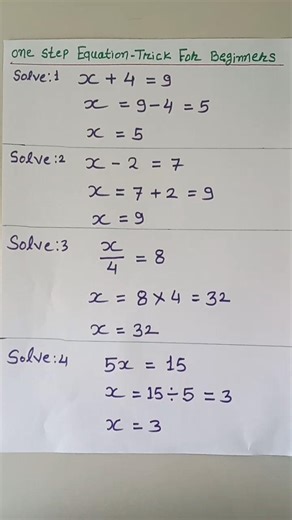 One Step Equation-Trick For Beginners
Solve:1 x + 4 = 9
x = 9-4 = 5
x = 5
Solve:2 x - 2 = 7
x = 7 + 2 = 9
x = 9
Solve:3 x/4 = 8
x = 8 × 4 = 32
x = 32
Solve:4 5x = 15
x = 15÷5 = 3
x = 3